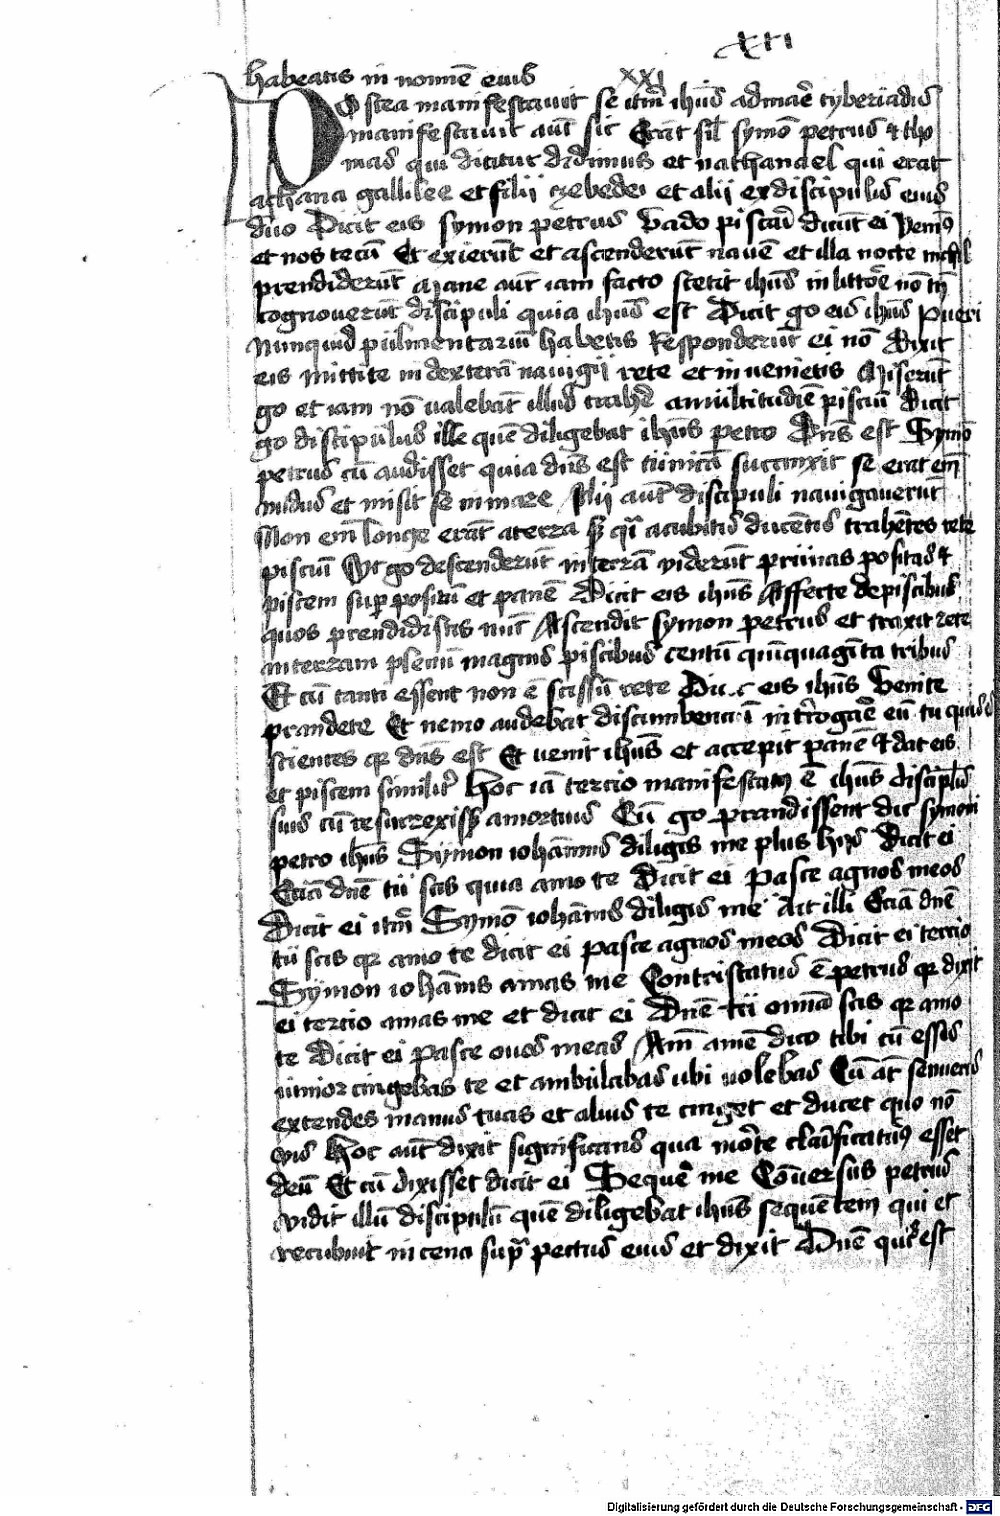 xxi
habeatis in nomīe eius
xxi
Postea manifestauit se itm̄ ihūs ad mar̄e tyberiadis
manifestauit aut̄ sic Erāt sil̄ symō petrus et tho
mas qui dicitur didimus et nathanael qui erat
achana gallilee et filii zebedei et alii ex discipulis eius
duo Dicit eis symon petrus Vado piscari dicūt ei Venim9
et nos tecū Et exierūt et ascenderūt nauē et illa nocte nichil
prendiderūt Mane aut̄ iam facto stetit ihūs in littor̄e nō tn̄
cognouerūt discipuli quia ihūs est Dicit g̊o eis ihūs Pueri
Nunquid pulmentariū habetis Responderūt ei nō Dixit
eis mittite in dexterā nauigij rete et inuenietis Miserūt
g̊o et iam nō ualebāt illud trahe̊ a multitudīe pisciū Dicit
g̊o discipulus ille quē diligebat ihūs petro Dn̄s est Symō
petrus cū audisset quia dn̄s est tunicā succinxit se erat em̄
nudus et misit se in mare Alii aut̄ discipuli nauigauerūt
Non em̄ longe erāt a terra s3 q̄ᵃ a cubitis ducētis trahētes rete
pisciū Vt g̊o descenderūt in terrā viderūt prunas positas et
piscem sup̄ positū et panē Dicit eis ihūs Afferte de piscibus
quos prendidistis nūc Ascendit symon petrus et traxit rete
in terram plenū magnis piscibus centū quīquagīta tribus
Et cū tanti essent non ē scissū rete Dicit eis ihūs Venite
prandete Et nemo audebat discumbenciū īterogar̄e eū tu quis es
scientes qr dn̄s est Et uenit ihūs et accepit panē et dat eis
et piscem similit̄ Hoc iā tercio manifestat9 ē ihūs discipl̄is
suis cū resurrexiss3 a mortuis Cū g̊o prandissent dic̄ symoni
petro ihūs Symon iohānnis diligis me plus hijs Dicit ei
Eciā dn̄e tu scis quia amo te Dicit ei Pasce agnos meos
Dicit ei itm̄ Symō iohānis diligis me Ait illi Eciā dn̄e
tu scis qr amo te dicit ei pasce agnos meos Dicit ei tercio
Symon iohānis amas me Contristatus ē petrus qr dixit
ei tercio amas me et dicit ei Dn̄e tu omnia scis qr amo
te Dicit ei Pasce oues meas Am̄ amē dico tibi cū esses
iunior cingebas te et ambulabas ubi uolebas Cū āt senueris
extendes manus tuas et alius te cinget et ducet quo nō
uis Hoc aut̄ dixit significans qua morte clarificatur9 esset
deū Et cū dixisset dicit ei Sequer̄e me Cōuersus petrus
vidit illū discipulū quē diligebat ihūs sequētem qui et
recubuit in cena supᵃ pectus eius et dixit Dn̄e quis est
Digitalisierung gefördert durch die Deutsche Forschungsgemeinschaft - DFG